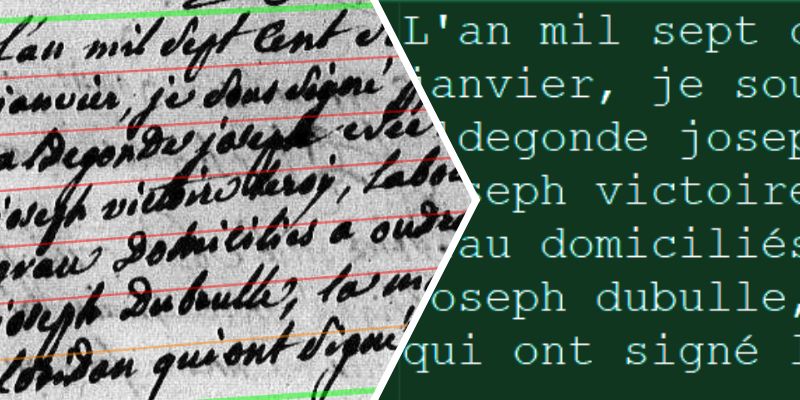 L'an mil sept Cent
janvier, je sous signé
Degonde joseph
joseph victoire leroy, labou
Domiciliés a oudr
joseph Dubulle, la m
qui ont signé
L'an mil sept c
janvier, je sou
ldegonde josep
seph victoire
au domiciliés
oseph dubulle,
qui ont signé l